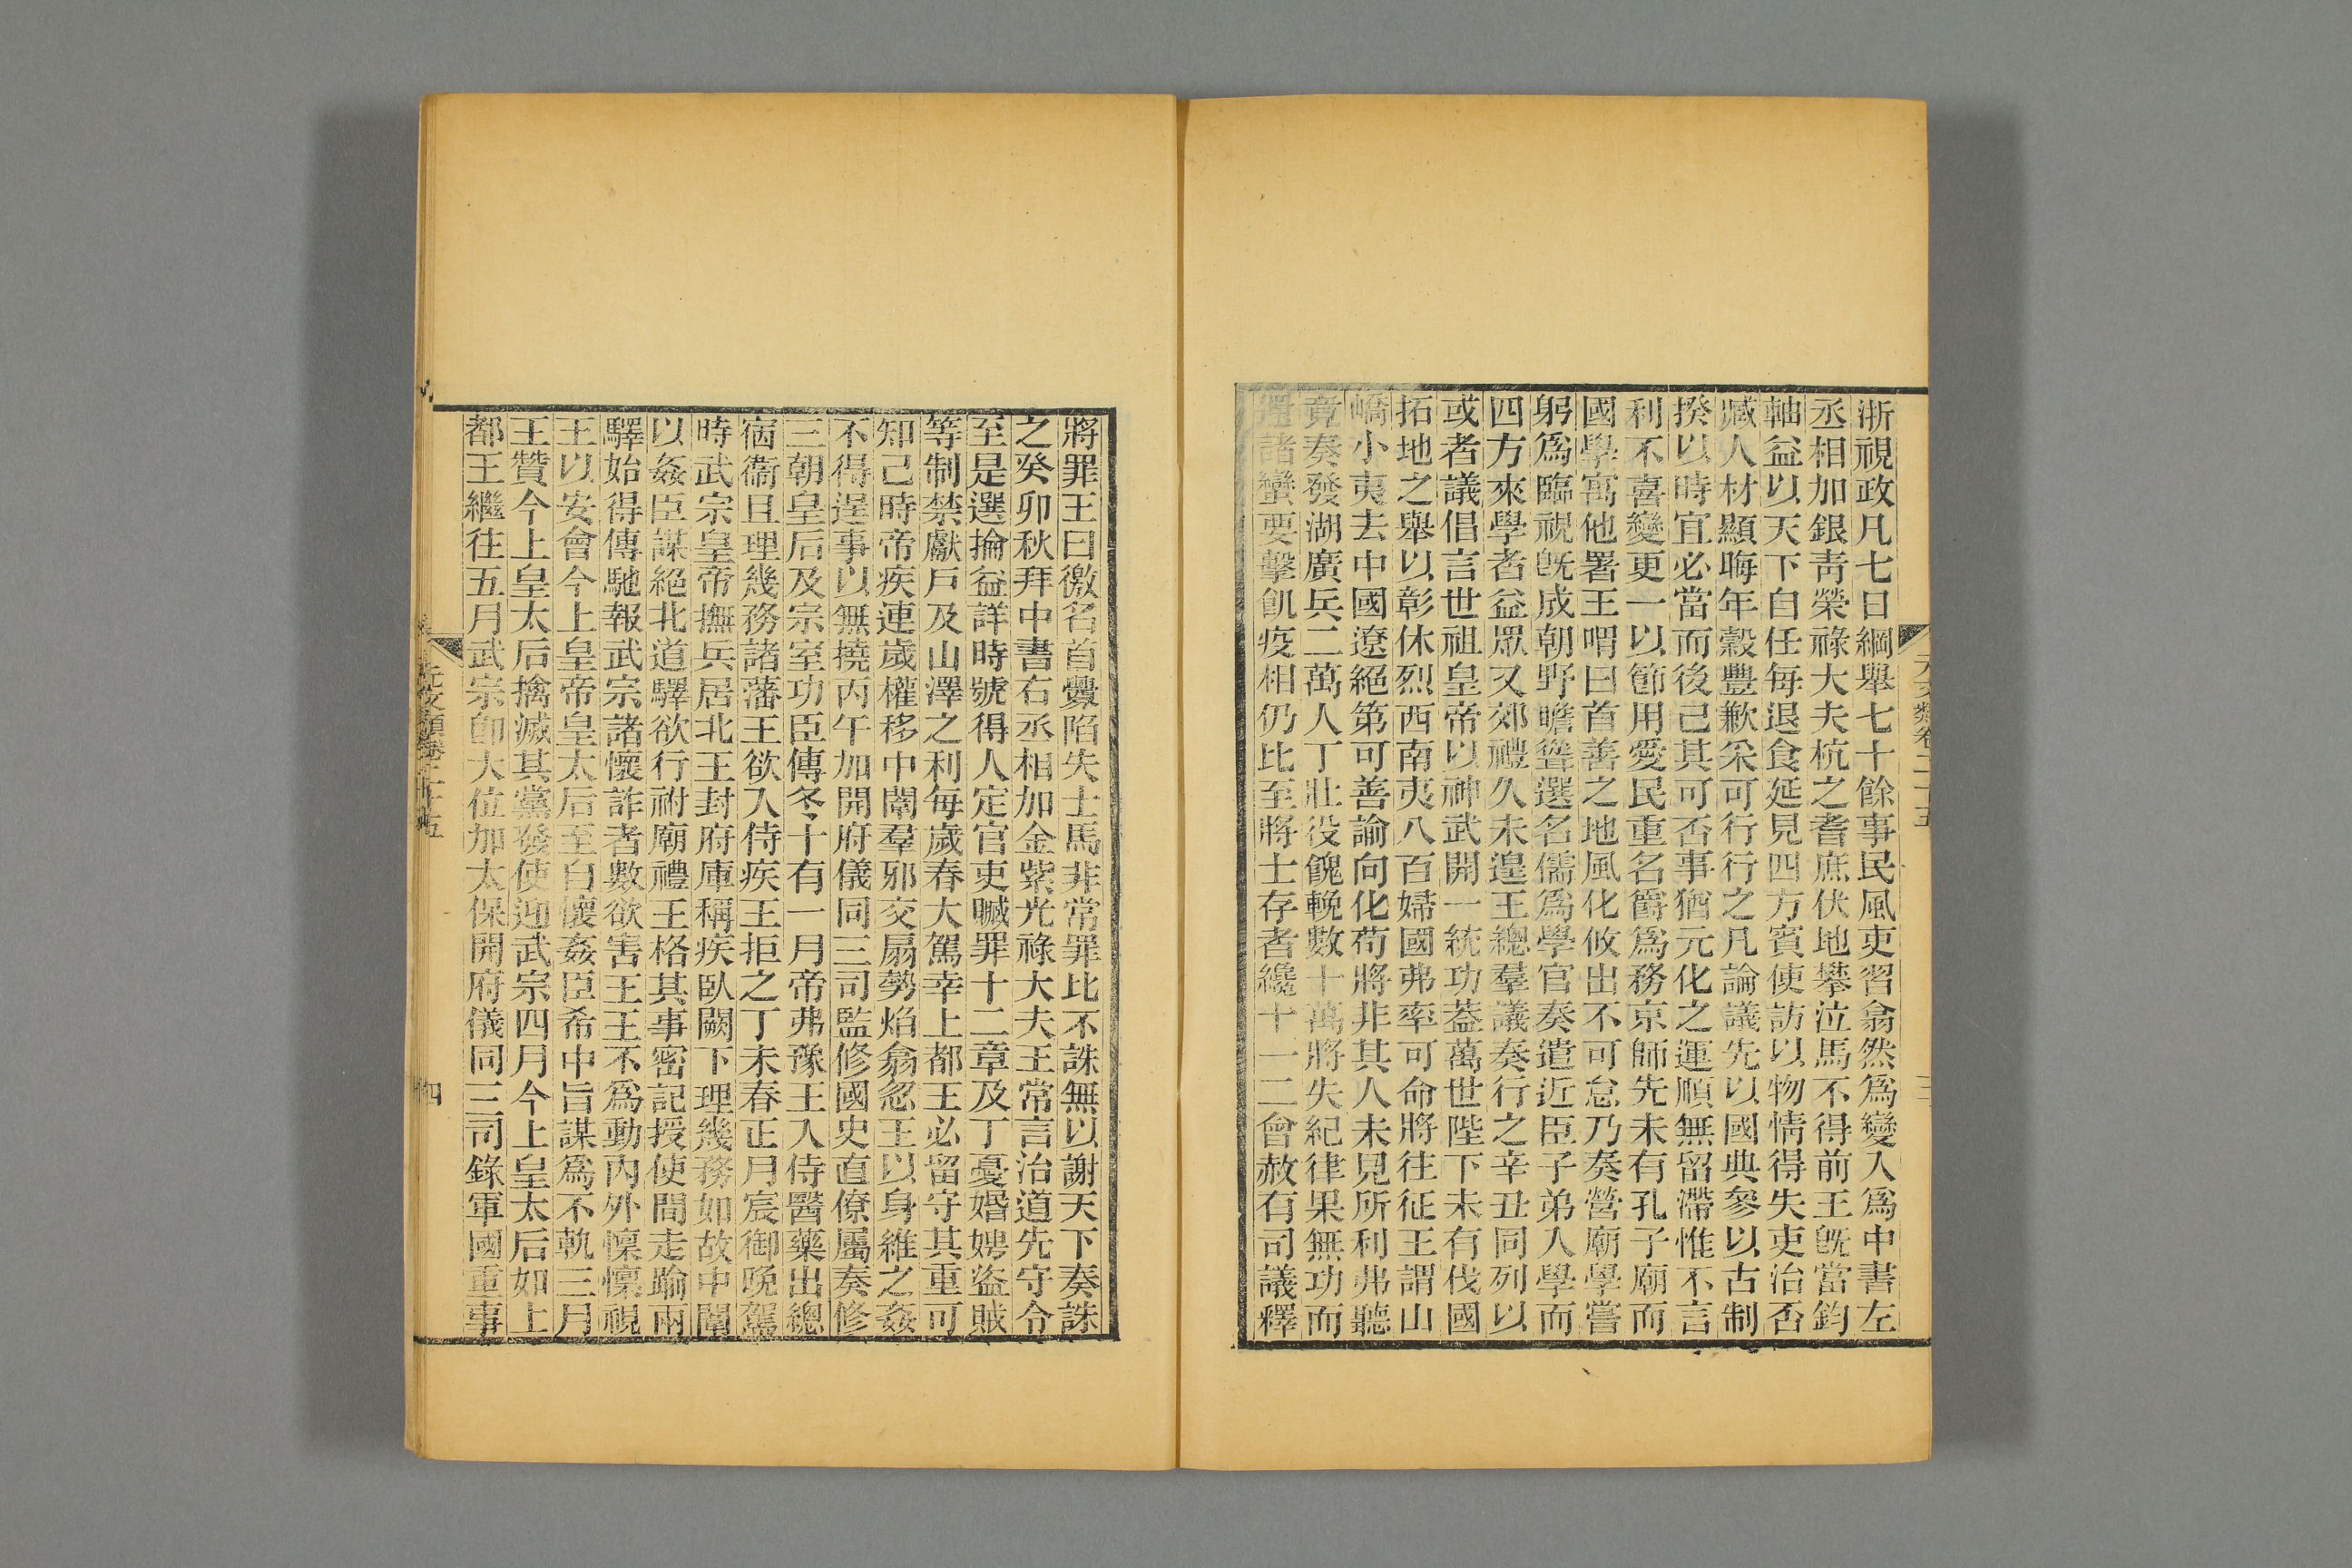 浙視政凡七日綱舉七十餘事民風吏習翕然爲變入爲中書左
丞相加銀靑榮祿大夫杭之耆庶伏地攀泣馬不得前王旣當鈞
軸益以天下自任每退食延見四方賓使訪以物情得失吏治否
臧人材顯晦年穀豐歉采可行行之凡論議先以國典參以古制
揆以時宜必當而後己其可否事猶元化之運順無留滯惟不言
利不喜變更一以節用愛民重名爵爲務京師先未有孔子廟而
國學寓他署王喟曰首善之地風化攸出不可怠乃奏營廟學嘗
躬爲臨視旣成朝野瞻聳選名儒爲學官奏遣近臣子弟入學而
四方來學者益眾又郊禮久未遑王總羣議奏行之辛丑同列以
或者議倡言世祖皇帝以神武開一統功葢萬世陛下未有伐國
拓地之舉以彰休烈西南夷八百婦國弗率可命將往征王謂山
嶠小夷去中國遼絕第可善諭向化苟將非其人未見所利弗聽
竟奏發湖廣兵二萬人丁壯役餽輓數十萬將失紀律果無功而
還諸蠻要擊飢疫相仍比至將士存者纔十一二會赦有司議釋
元文類卷二十五
三
將罪王曰徼名首釁陷失士馬非常罪比不誅無以謝天下奏誅
之癸卯秋拜中書右丞相加金紫光祿大夫王常言治道先守令
至是選掄益詳時號得人定官吏贓罪十二章及丁憂婚娉盜賊
等制禁獻戶及山澤之利每歲春大駕幸上都王必留守其重可
知己時帝疾連歲權移中闈羣邪交扇勢焰翕忽王以身維之姦
不得逞事以無撓丙午加開府儀同三司監修國史直僚屬奏修
三朝皇后及宗室功臣傳冬十有一月帝弗豫王入侍醫藥出總
宿衞且理幾務諸藩王欲入侍疾王拒之丁未春正月宸御晚駕
時武宗皇帝撫兵居北王封府庫稱疾臥闕下理幾務如故中闈
以姦臣謀絕北道驛欲行祔廟禮王格其事密記授使間走踰兩
驛始得傳馳報武宗諸懷詐者數欲害王王不爲動內外懍懍視
王以安會今上皇帝皇太后至自懷姦臣希中旨謀爲不軌三月
王贊今上皇太后擒滅其黨發使迎武宗四月今上皇太后如上
都王繼往五月武宗卽大位加太保開府儀同三司錄軍國重事
元文類卷二十五
四